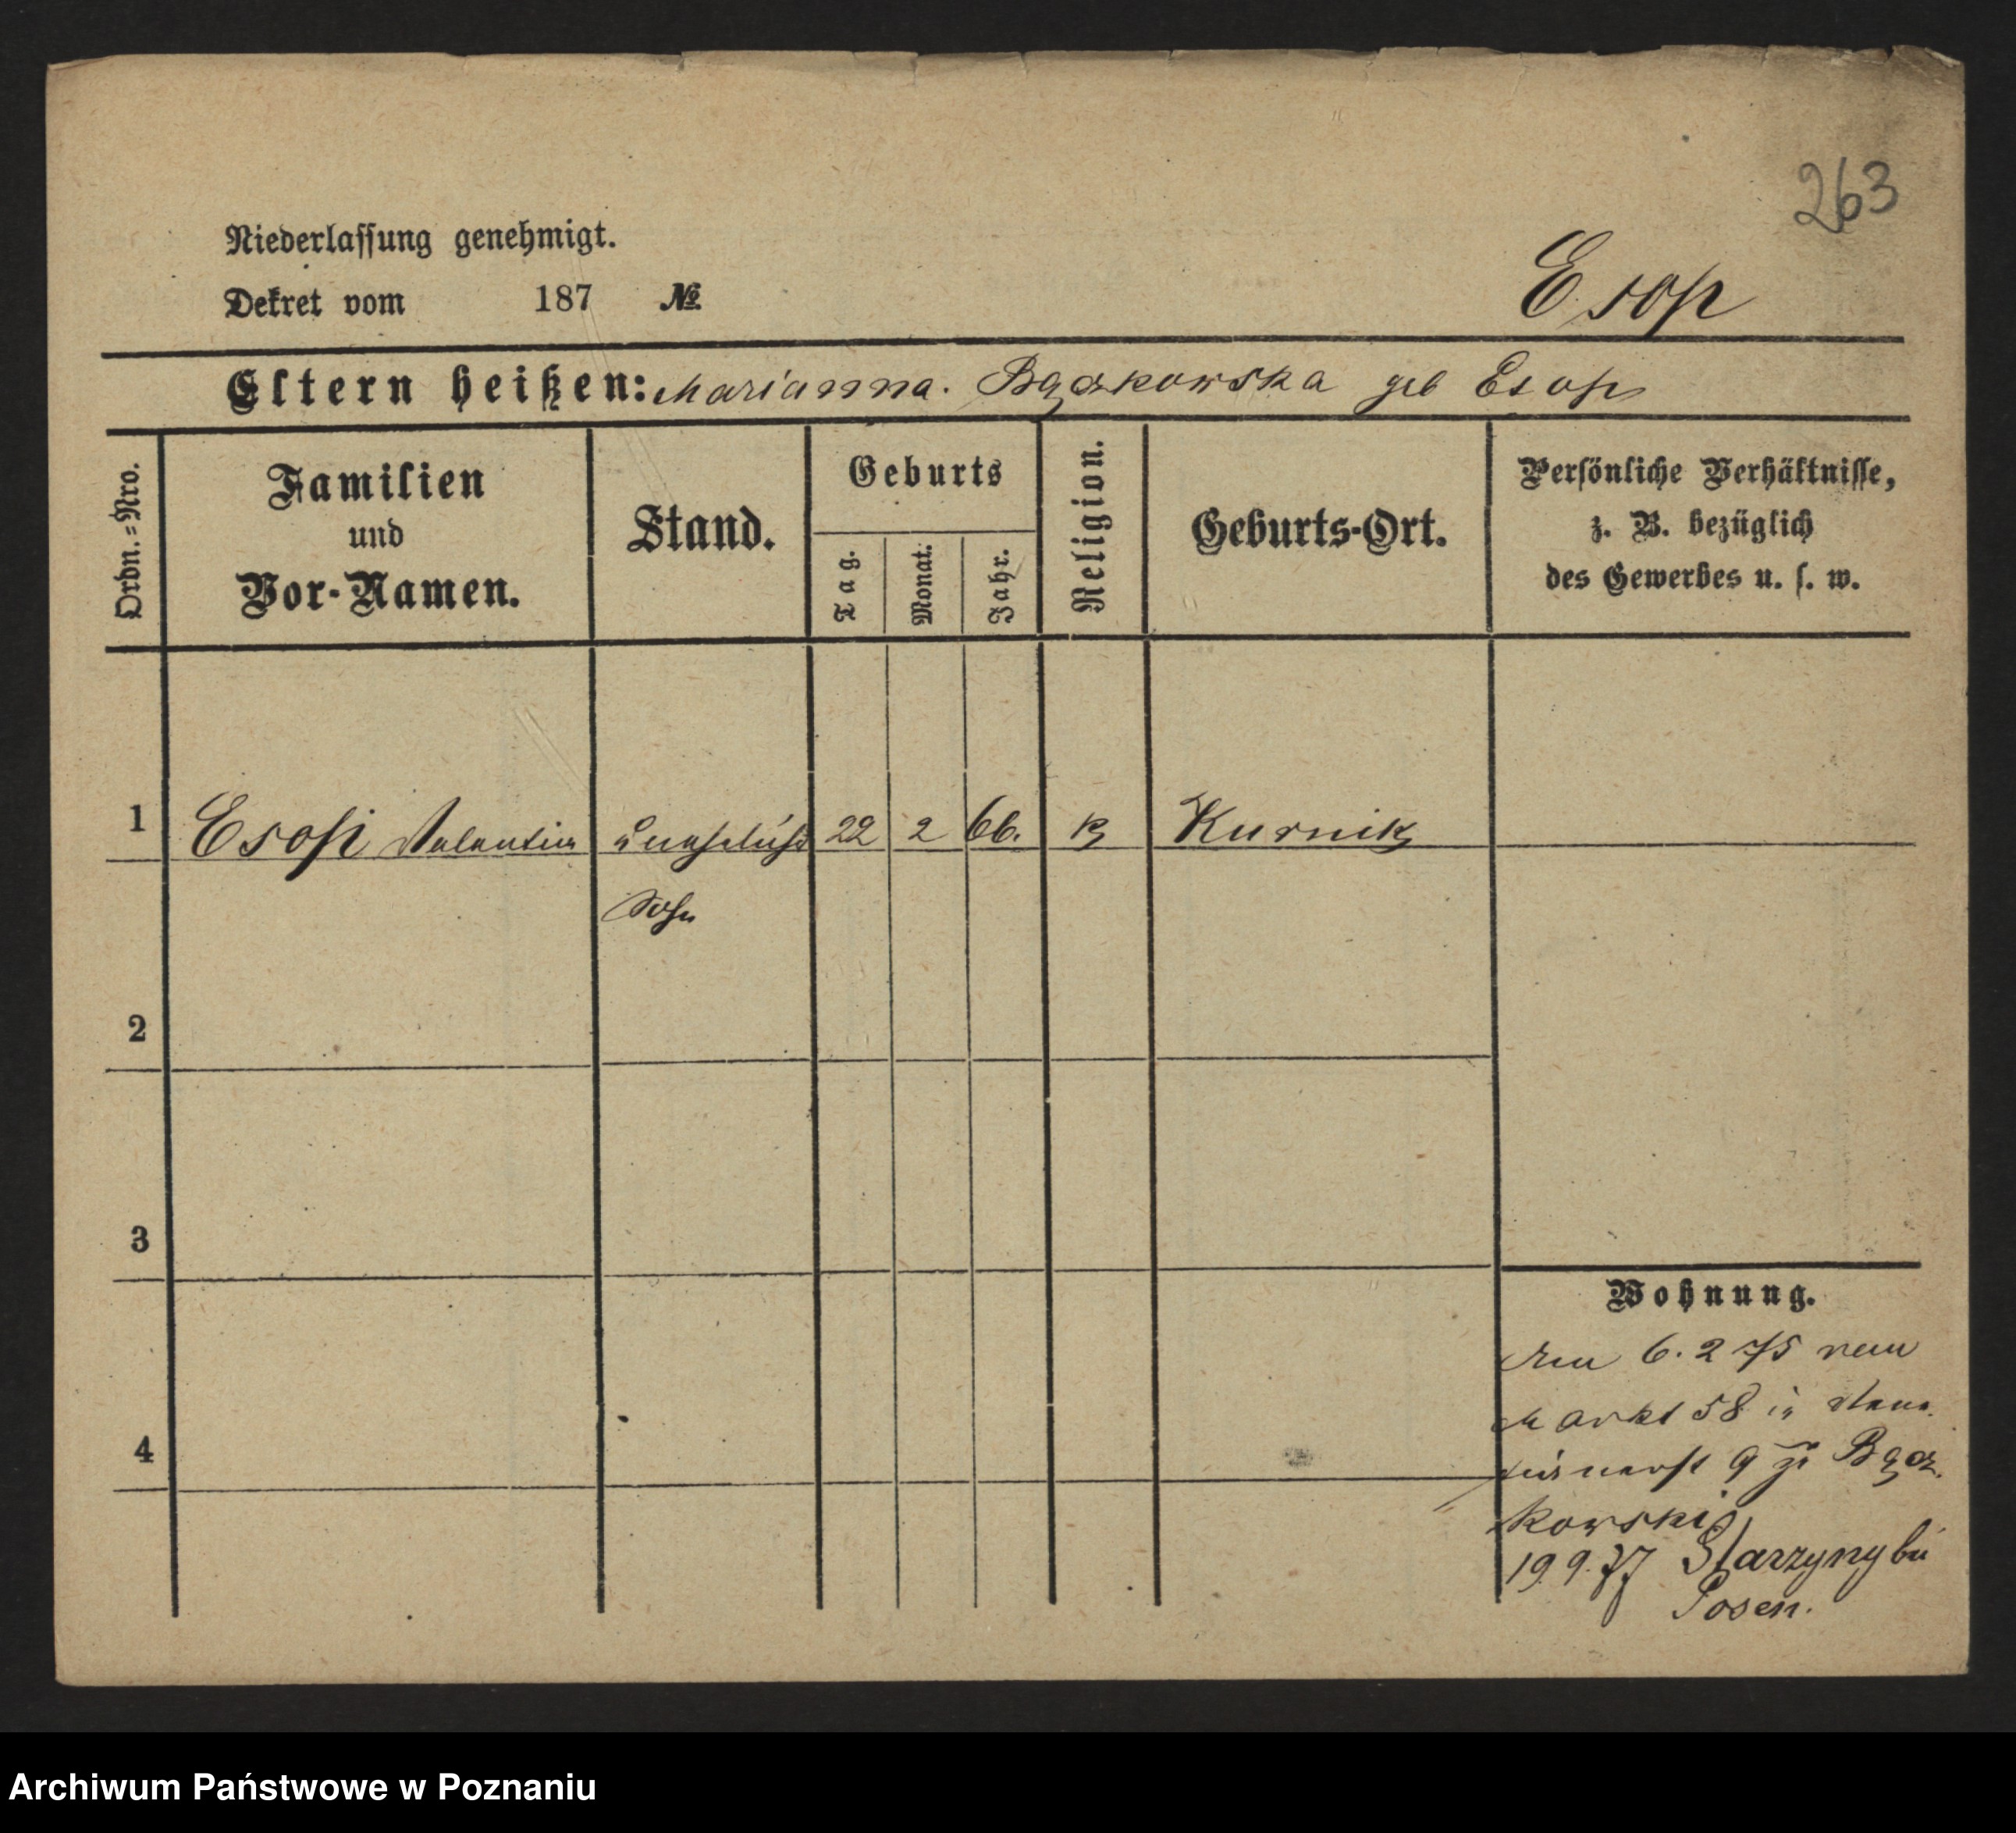 263
Niederlassung genehmigt.
Dekret vom 187 №
Esop
Eltern heißen: Marianna. Bączkowska geb Esop
Ordn.=Nro.
Familien
und
Vor-Namen.
Stand.
Geburts
Tag.
Monat.
Jahr.
Religion.
Geburts-Ort.
Persönliche Verhältnisse,
z. B. bezüglich
des Gewerbes u. s. w.
1 Esop Valentin 22 2 66. k Kurnik
Sohn
2
3
4
Wohnung.
6. 2 75
Markt 58
9 Bącz
kowski
19. 9. 77 Starzyny bei
Posen.
Archiwum Państwowe w Poznaniu